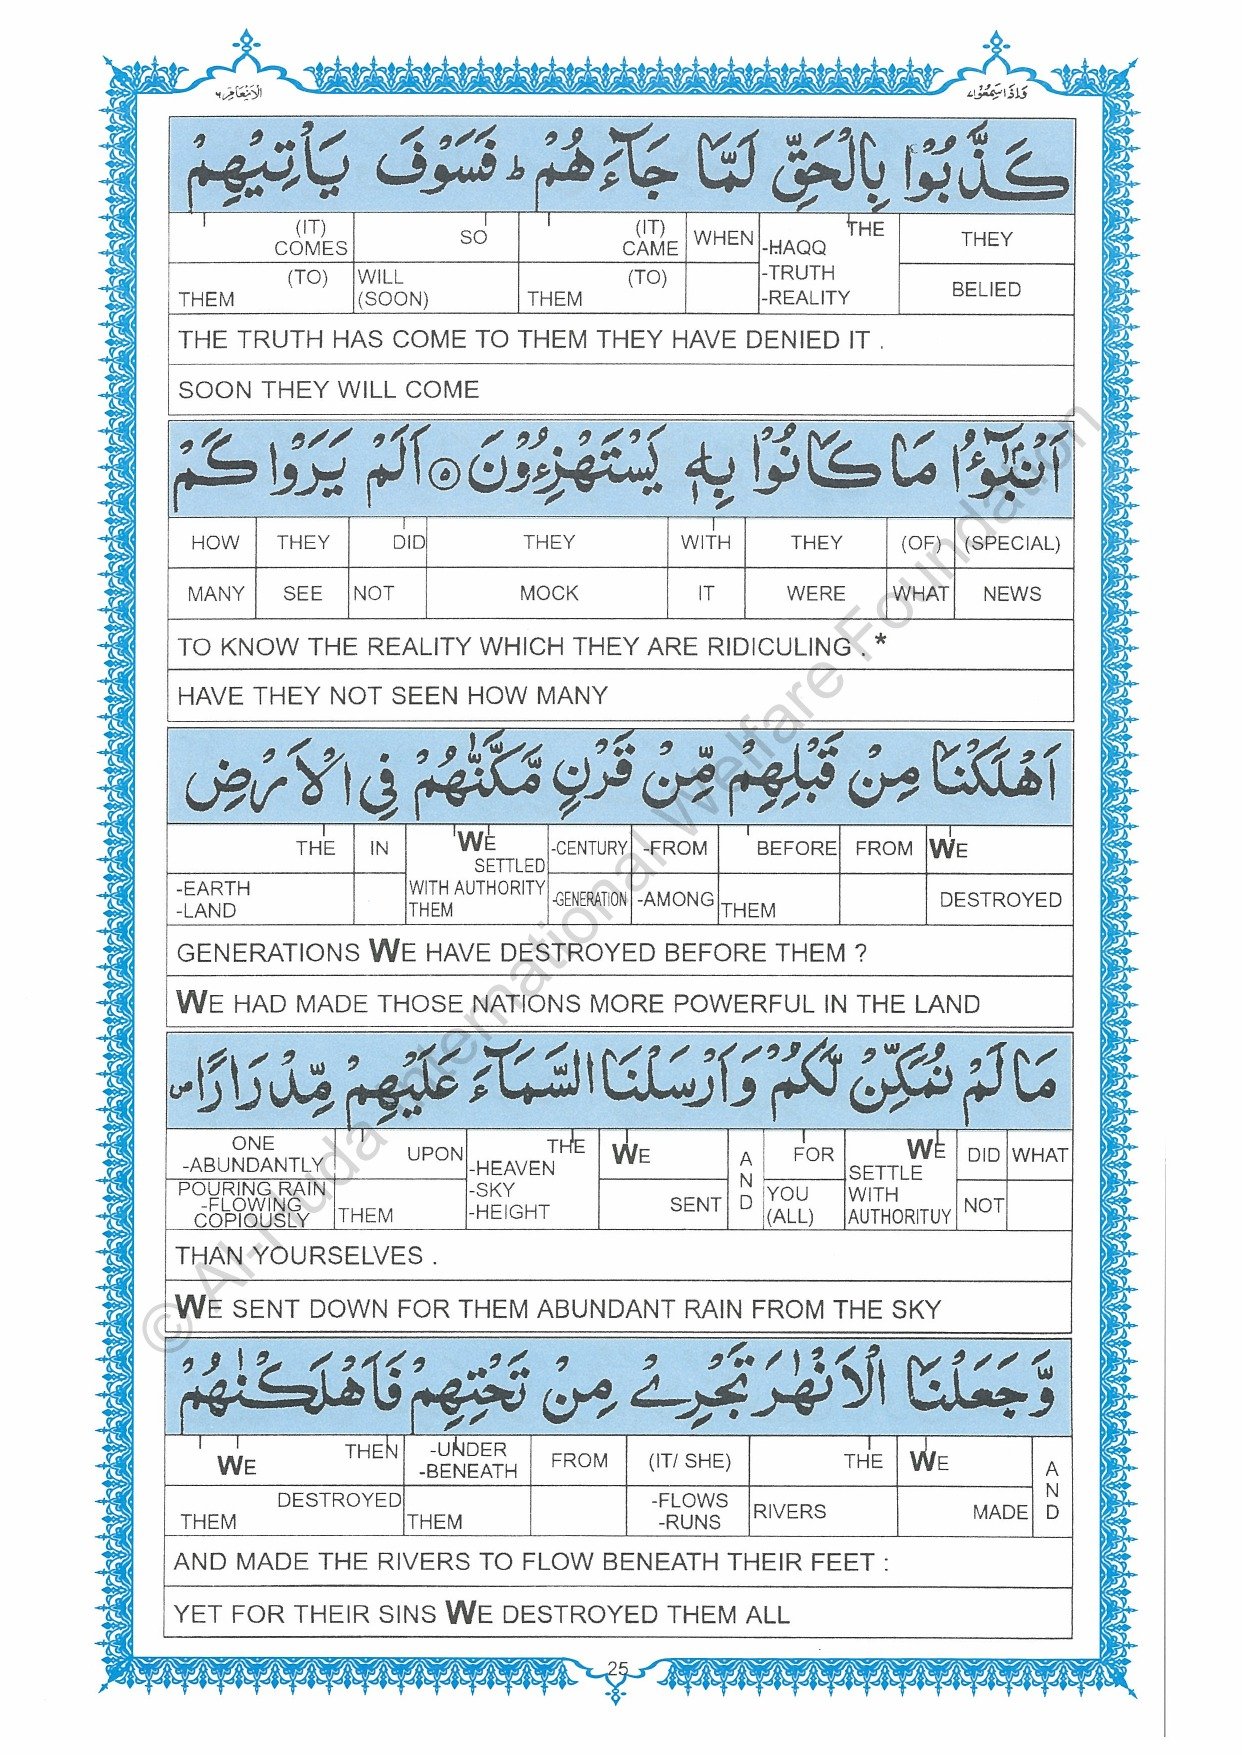 الانعام ٦
واذا سمعوا ٧
كَذَّبُوْا بِالْحَقِّ لَمَّا جَآءَهُمْ ؕ فَسَوْفَ يَاْتِيْهِمْ
(IT) COMES (TO) THEM | SO WILL (SOON) | (IT) CAME (TO) THEM | WHEN | THE -HAQQ -TRUTH -REALITY | THEY BELIED
THE TRUTH HAS COME TO THEM THEY HAVE DENIED IT .
SOON THEY WILL COME
اَنْۢبٰٓؤُا مَا كَانُوْا بِهٖ يَسْتَهْزِءُوْنَ ۵ اَلَمْ يَرَوْا كَمْ
HOW | THEY | DID | THEY | WITH | THEY | (OF) | (SPECIAL)
MANY | SEE | NOT | MOCK | IT | WERE | WHAT | NEWS
TO KNOW THE REALITY WHICH THEY ARE RIDICULING . *
HAVE THEY NOT SEEN HOW MANY
اَهْلَكْنَا مِنْ قَبْلِهِمْ مِّنْ قَرْنٍ مَّكَّنّٰهُمْ فِي الْاَرْضِ
THE -EARTH -LAND | IN | WE SETTLED WITH AUTHORITY THEM | -CENTURY -GENERATION | -FROM -AMONG | BEFORE THEM | FROM | WE DESTROYED
GENERATIONS WE HAVE DESTROYED BEFORE THEM ?
WE HAD MADE THOSE NATIONS MORE POWERFUL IN THE LAND
مَا لَمْ نُمَكِّنْ لَّكُمْ وَاَرْسَلْنَا السَّمَآءَ عَلَيْهِمْ مِّدْرَارًا ص
ONE -ABUNDANTLY POURING RAIN -FLOWING COPIOUSLY | UPON THEM | THE -HEAVEN -SKY -HEIGHT | WE SENT | AND | FOR YOU (ALL) | WE SETTLE WITH AUTHORITUY | DID NOT | WHAT
THAN YOURSELVES .
WE SENT DOWN FOR THEM ABUNDANT RAIN FROM THE SKY
وَّجَعَلْنَا الْاَنْهٰرَ تَجْرِيْ مِنْ تَحْتِهِمْ فَاَهْلَكْنٰهُمْ
THEN WE DESTROYED THEM | -UNDER -BENEATH THEM | FROM | (IT/ SHE) -FLOWS -RUNS | THE RIVERS | WE MADE | AND
AND MADE THE RIVERS TO FLOW BENEATH THEIR FEET :
YET FOR THEIR SINS WE DESTROYED THEM ALL
25
© Al-Huda International Welfare Foundation